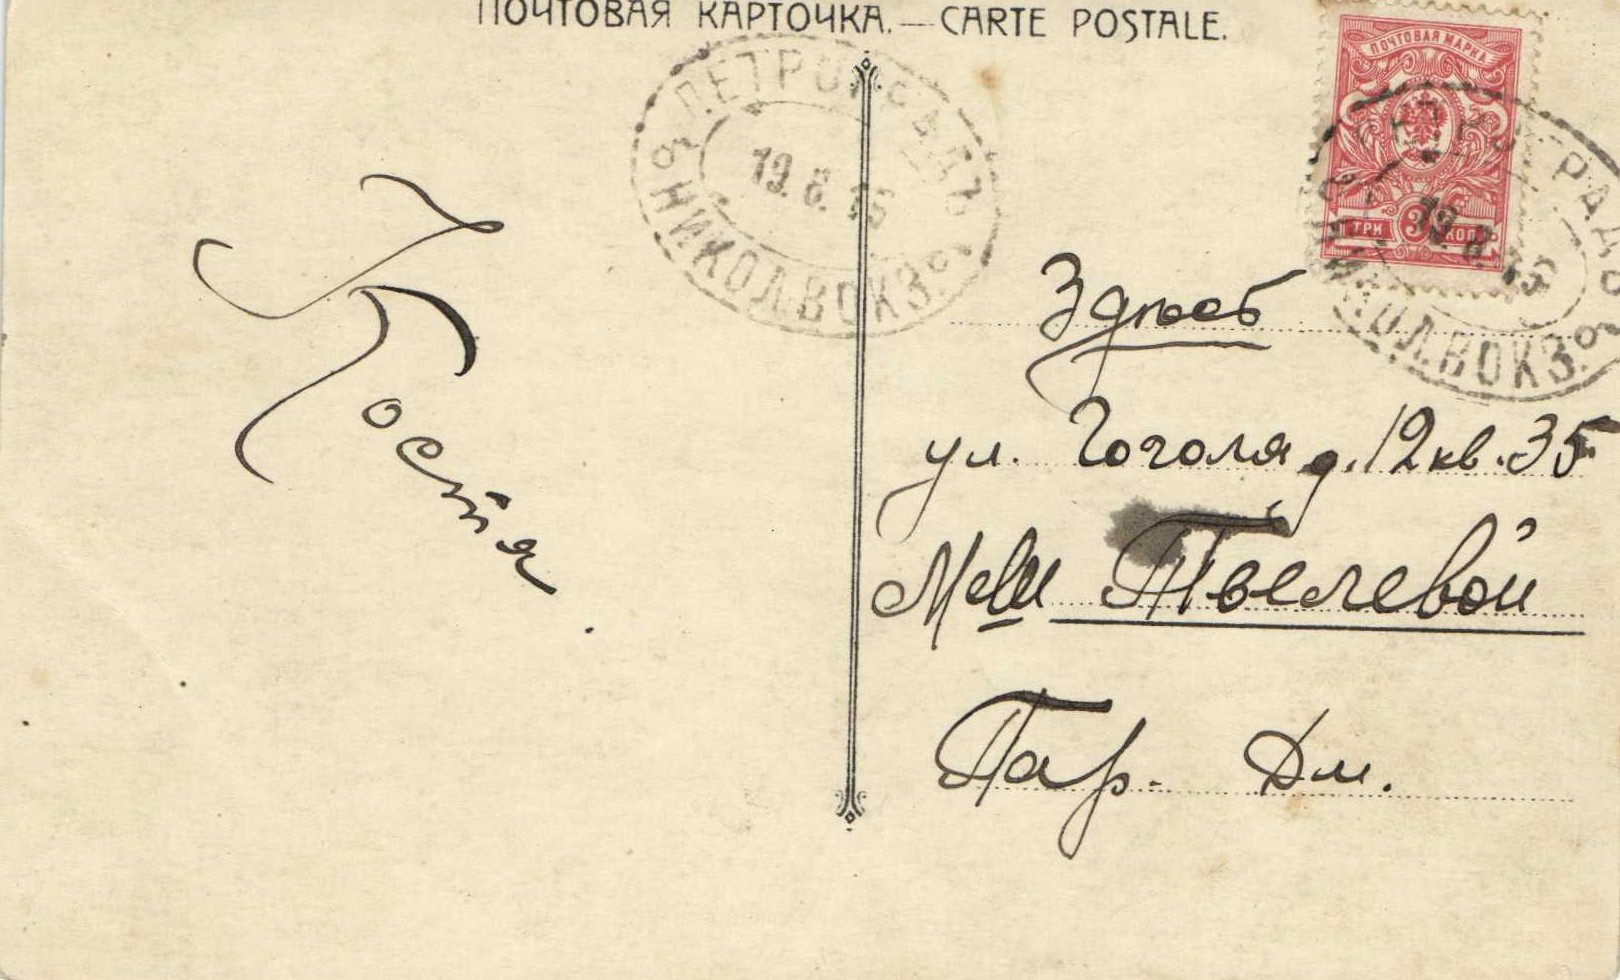 ПОЧТОВАЯ КАРТОЧКА. — CARTE POSTALE.
ПОЧТОВАЯ МАРКА
ТРИ 3 КОП.
ПЕТРОГРАДЪ
19.8.15
НИКОЛ.ВОКЗ.
ПЕТРОГРАДЪ
19.8.15
НИКОЛ.ВОКЗ.
Костя
Здѣсь
ул. Гоголя д. 12 кв. 35
Пар. Дм.